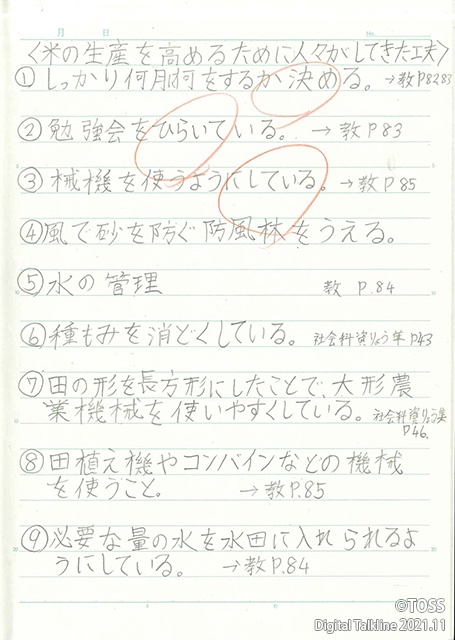 月 日
No.
〈米の生産を高めるために人々がしてきた工夫〉
①しっかり何月何をするか決める。→教P8283
②勉強会をひらいている。 → 教P83
③械機を使うようにしている。→教P85
④風で砂を防ぐ防風林をうえる。
⑤水の管理 教 P.84
⑥種もみを消どくしている。 社会科資りょう集P43
⑦田の形を長方形にしたことで、大形農
業機械を使いやすくしている。社会科資りょう集
P46.
⑧田植え機やコンバインなどの機械
を使うこと。 →教P.85
⑨必要な量の水を水田に入れられるよ
うにしている。 →教P.84
©TOSS
Digital Talkline 2021.11